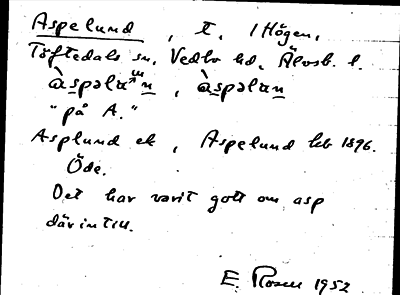 Aspelund, t. 1 Högen,
Töftedals sn, Vedbo hd, Älvsb. l.
àspəluⁿn, àspəlun
"på A."
Asplund ek, Aspelund kb 1896.
Öde.
Det har varit gott om asp
där intill.
E. Rosen 1952